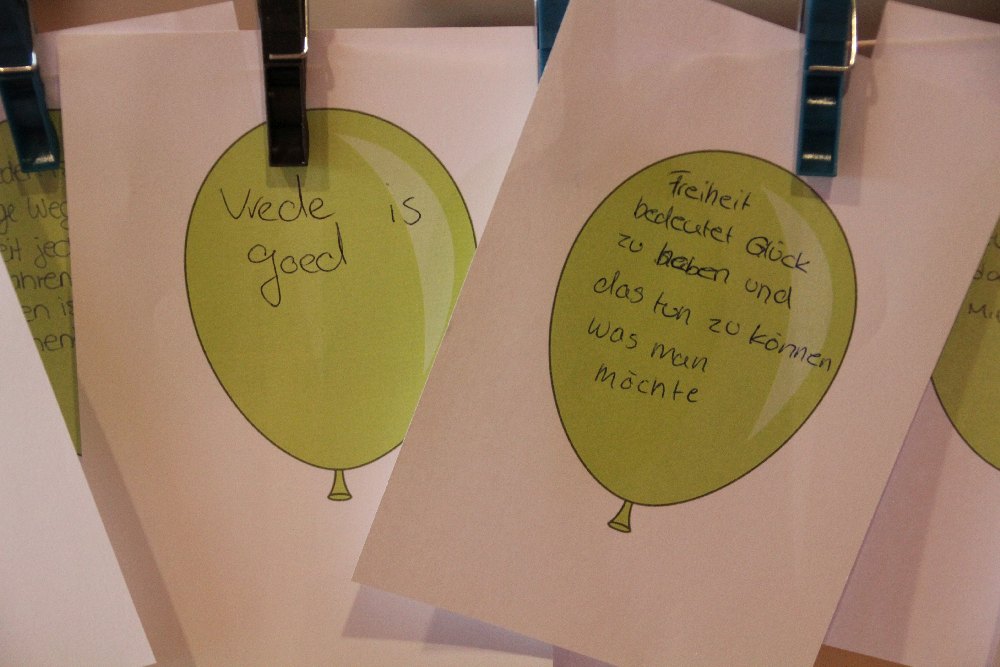 ge Weg
eit jed
ahren
en is
Vrede is
goed
Freiheit
bedeutet Glück
zu haben und
das tun zu können
was man
möchte